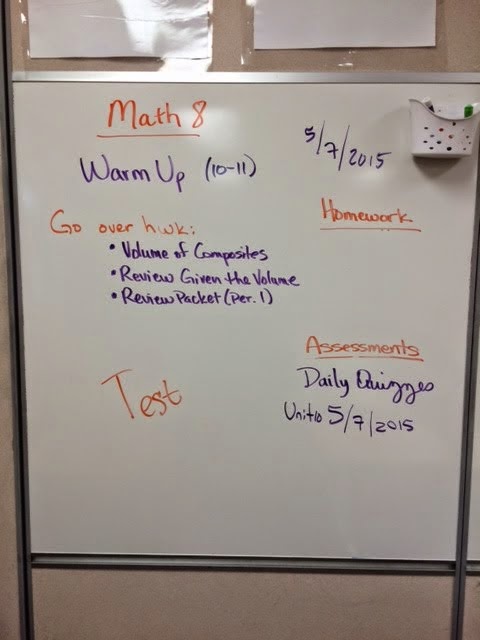 Math 8
5/7/2015
Warm Up (10-11)
Homework
Go over hwk:
• Volume of Composites
• Review Given the Volume
• Review Packet (Per. 1)
Assessments
Daily Quizzes
Unit 10 5/7/2015
Test